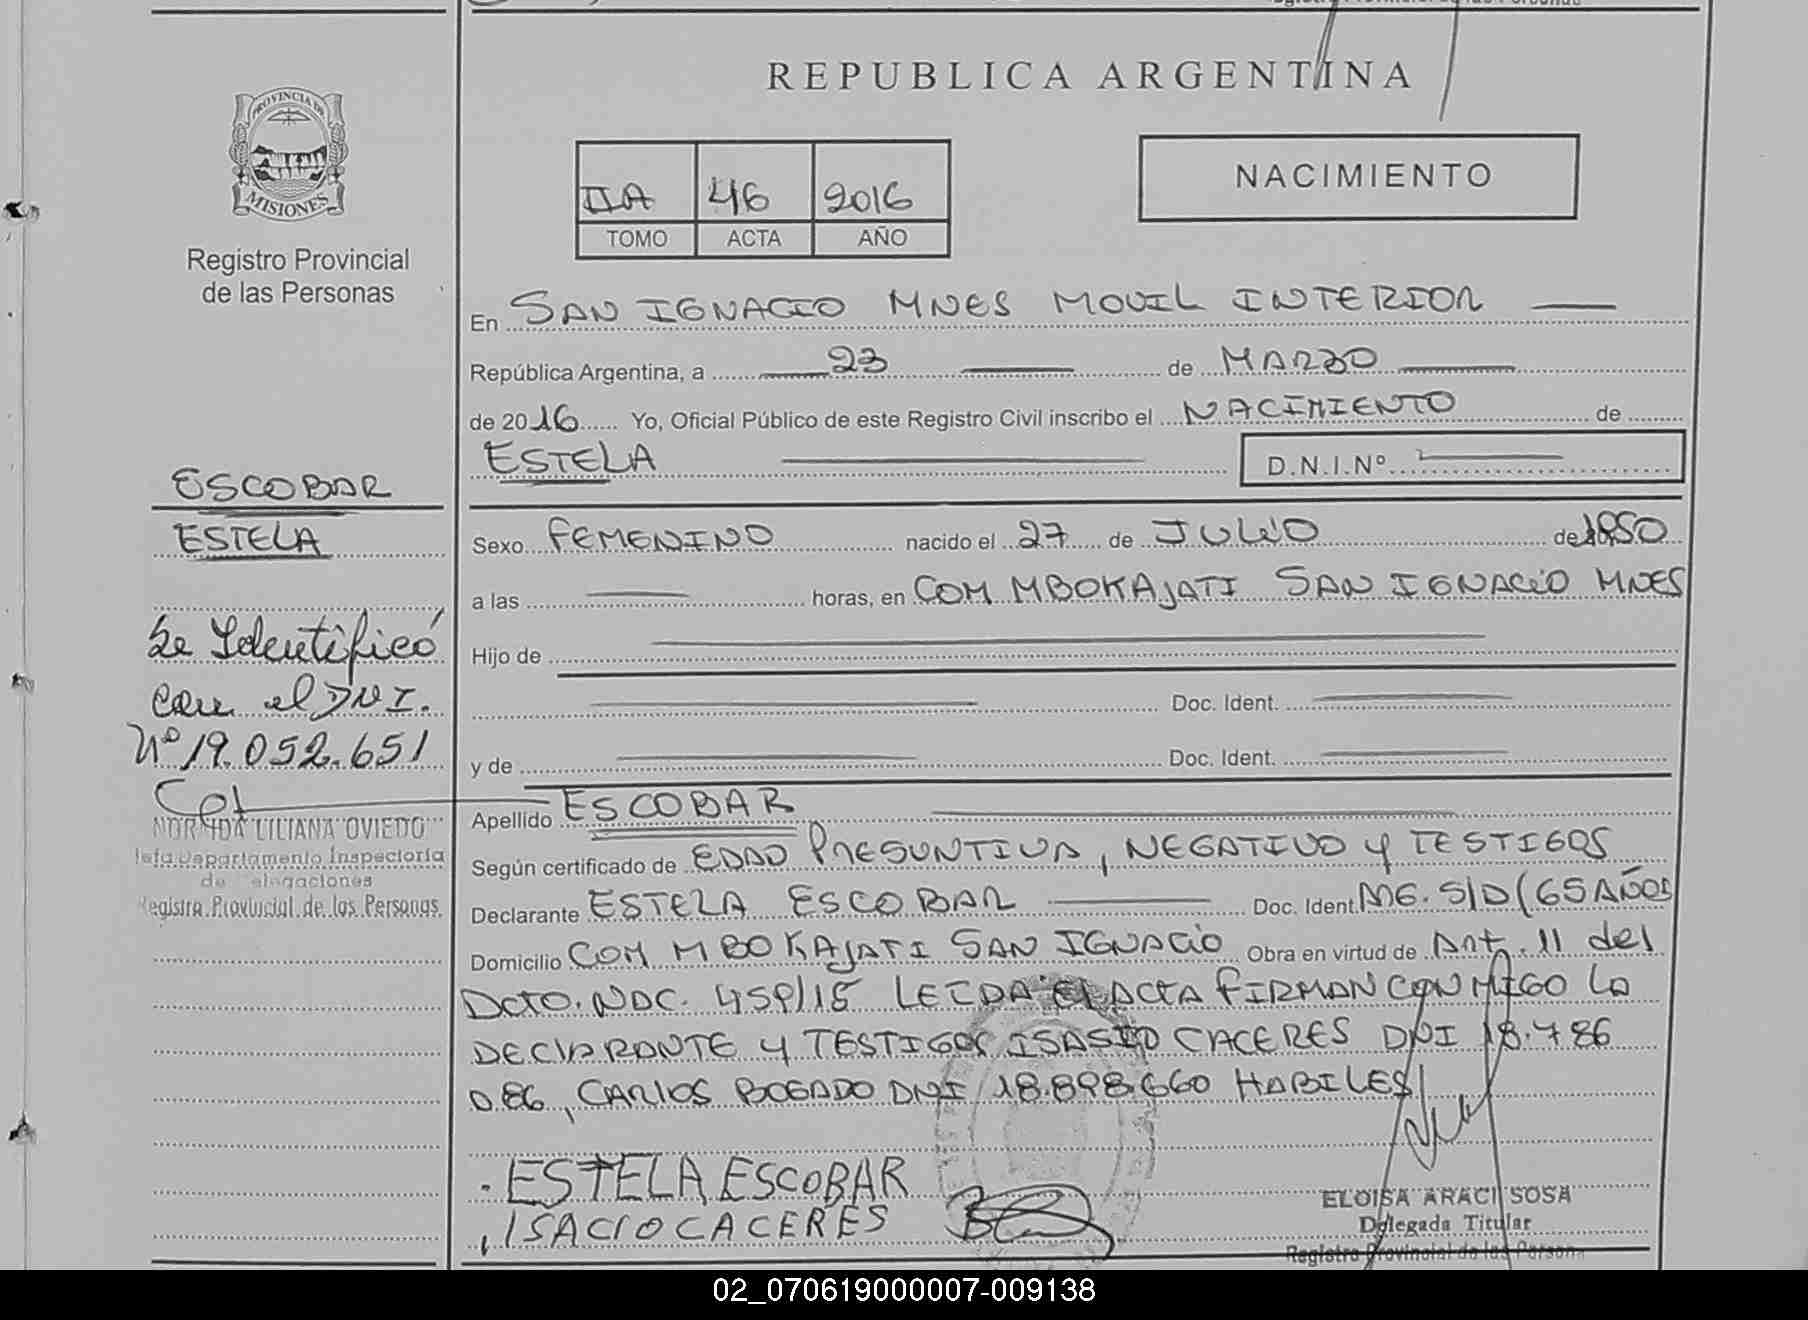 REPUBLICA ARGENTINA
PROVINCIA DE
MISIONES
Registro Provincial
de las Personas
IIA 46 2016
TOMO ACTA AÑO
NACIMIENTO
En SAN IGNACIO MNES MOVIL INTERIOR
República Argentina, a 23 de MARZO
de 2016 Yo, Oficial Público de este Registro Civil inscribo el NACIMIENTO de
ESTELA D.N.I.Nº
Sexo FEMENINO nacido el 27 de JULIO de 1950
a las horas, en COM MBOKAJATI SAN IGNACIO MNES
Hijo de
Doc. Ident.
y de Doc. Ident.
Apellido ESCOBAR
Según certificado de EDAD PRESUNTIVA, NEGATIVO y TESTIGOS
Declarante ESTELA ESCOBAR Doc. Ident. MG. S/D (65 AÑOS
Domicilio COM MBOKAJATI SAN IGNACIO Obra en virtud de Art. 11 del
DCTO. NAC. 459/15 LEIDA EL ACTA FIRMAN CONMIGO LA
DECLARANTE Y TESTIGOS ISASIO CACERES DNI 18.786
086, CARLOS BOGADO DNI 18.898.660 HABILES
ESTELA ESCOBAR
ISACIO CACERES
ELOISA ARACI SOSA
Delegada Titular
Registro Provincial de las Persona
ESCOBAR
ESTELA
Se Identificó
con el DNI.
Nº 19.052.651
NORMDA LILIANA OVIEDO
Jefa Departamento Inspectoría
de elegaciones
Registro Provincial de las Personas
02_070619000007-009138